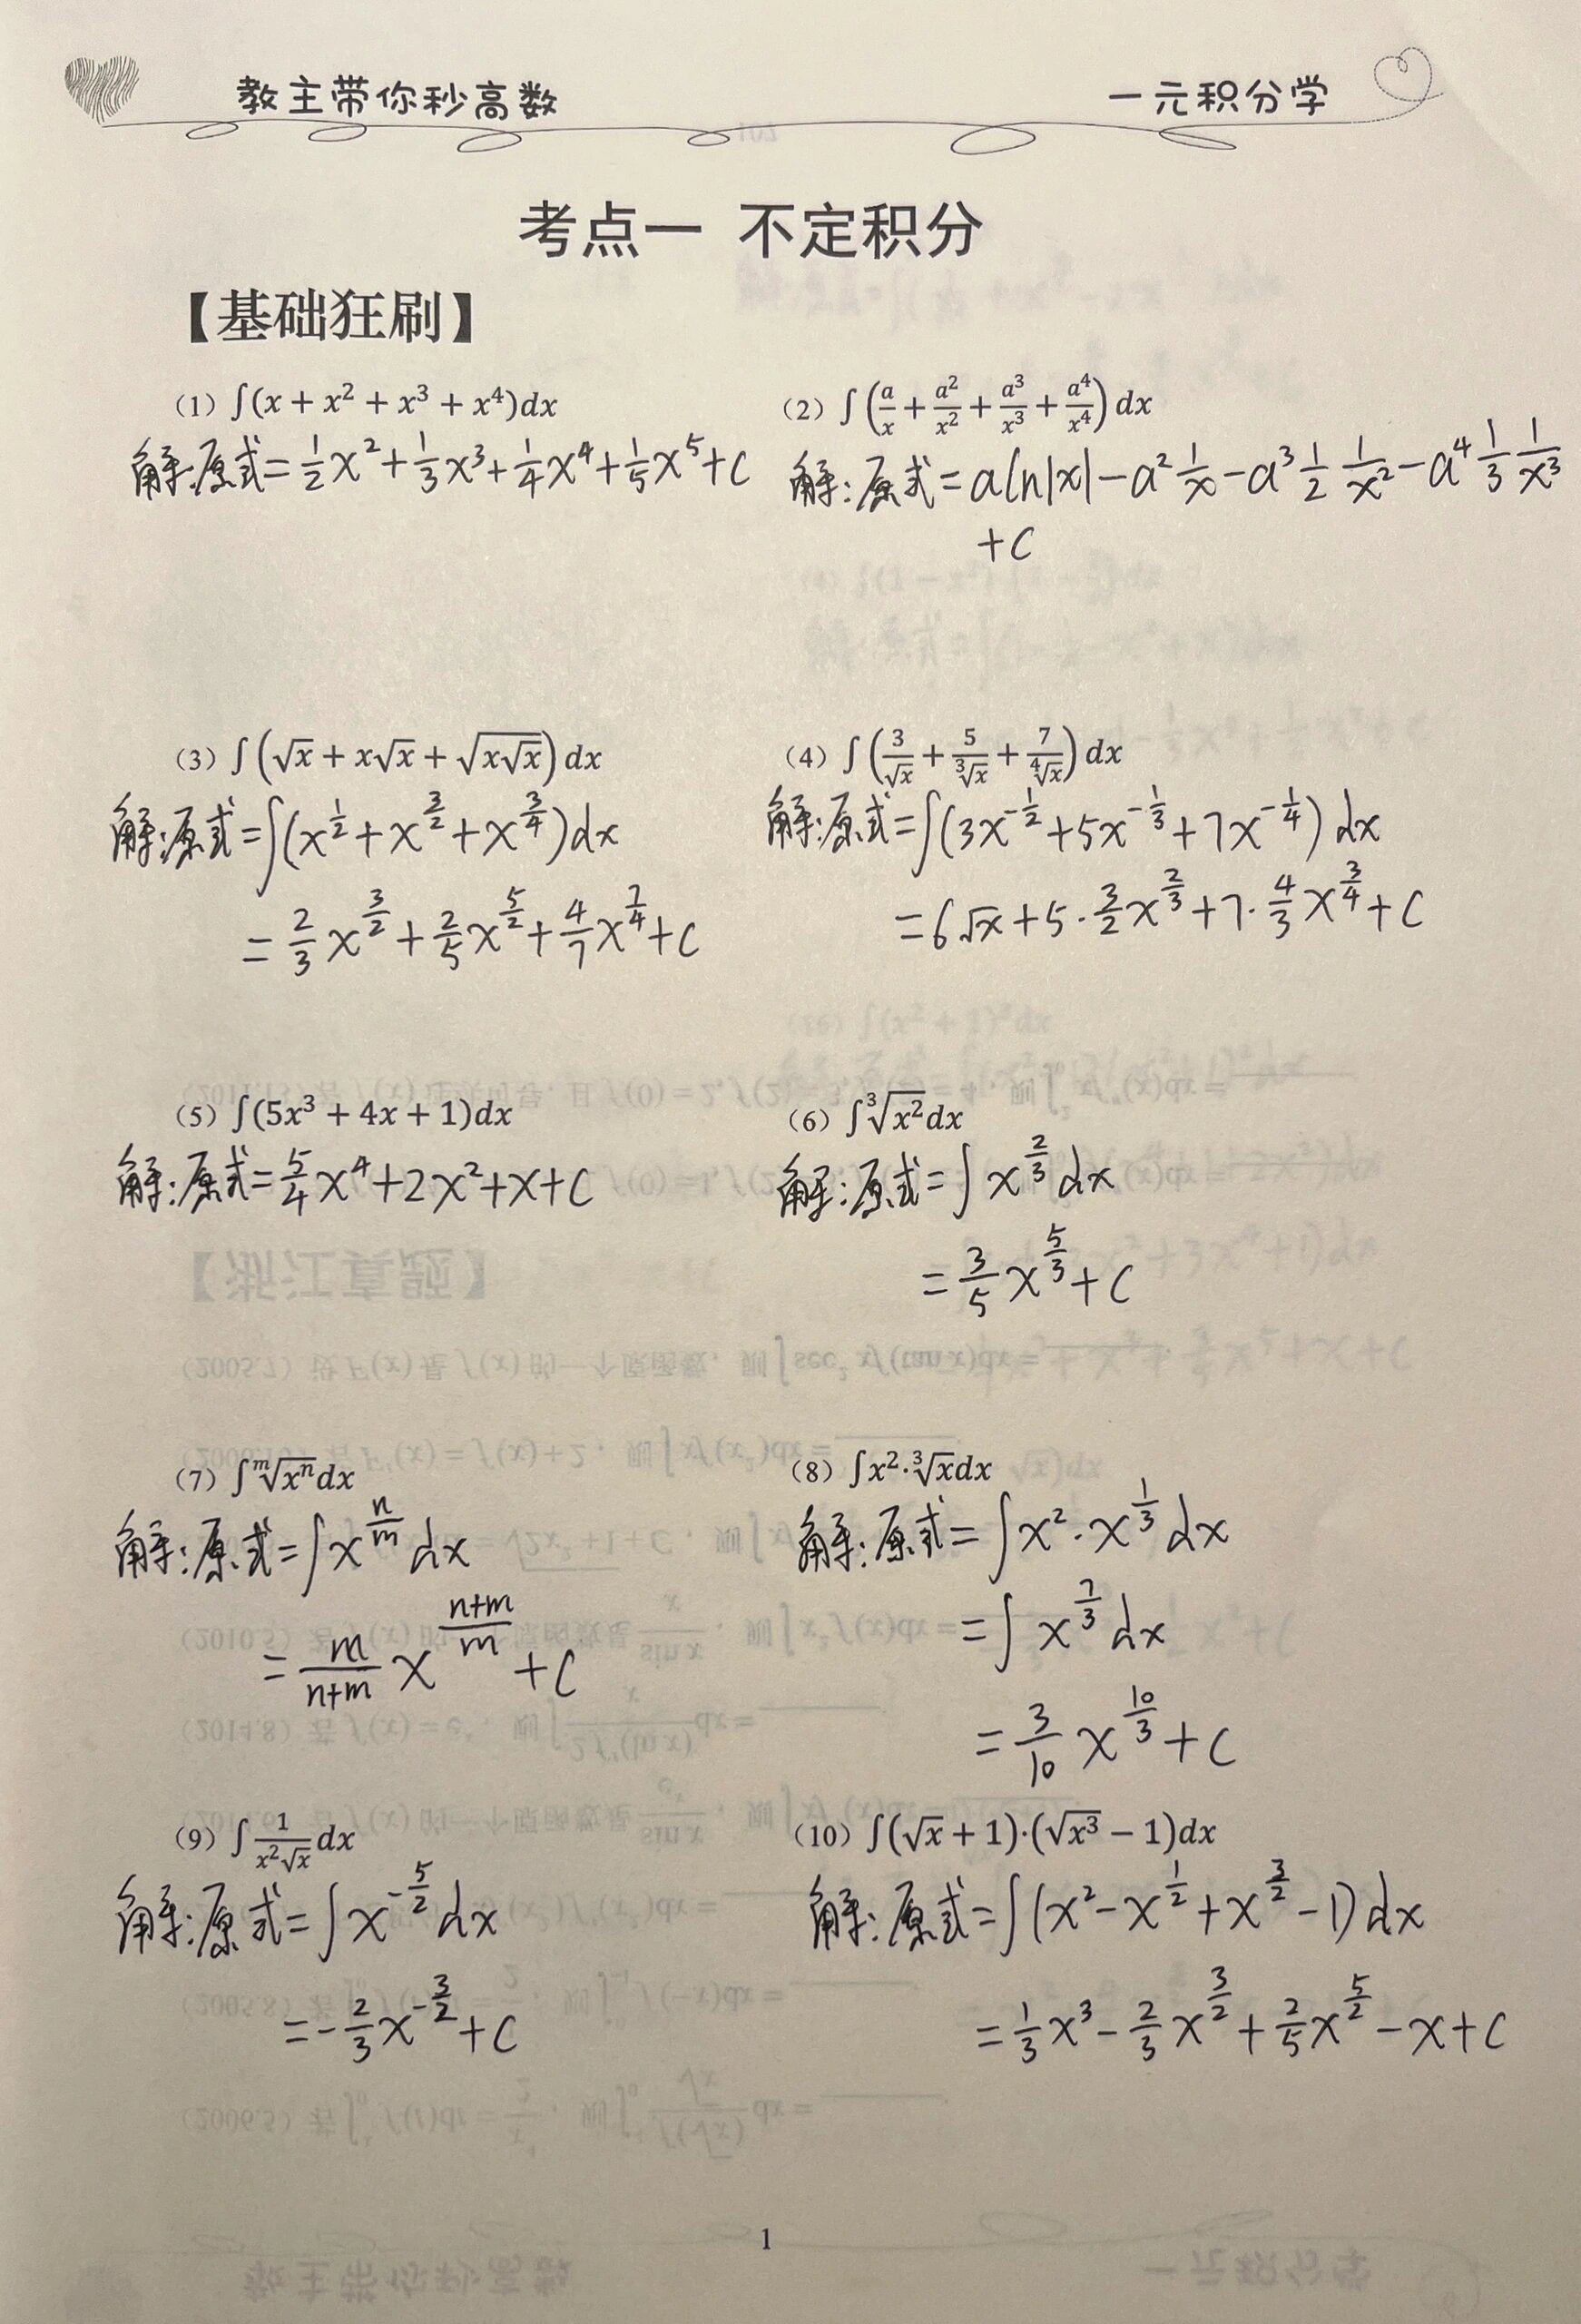 教主带你秒高数 一元积分学
考点一 不定积分
【基础狂刷】
(1) ∫(x + x² + x³ + x⁴)dx
解:原式=1/2 x²+1/3 x³+1/4 x⁴+1/5 x⁵+C
(2) ∫(a/x + a²/x² + a³/x³ + a⁴/x⁴) dx
解:原式=aln|x|-a² 1/x-a³ 1/2 1/x²-a⁴ 1/3 1/x³
+C
(3) ∫(√x + x√x + √(x√x)) dx
解:原式=∫(x^(1/2)+x^(3/2)+x^(3/4))dx
=2/3 x^(3/2)+2/5 x^(5/2)+4/7 x^(7/4)+C
(4) ∫(3/√x + 5/∛x + 7/∜x) dx
解:原式=∫(3x^(-1/2)+5x^(-1/3)+7x^(-1/4))dx
=6√x+5·3/2 x^(2/3)+7·4/3 x^(3/4)+C
(5) ∫(5x³ + 4x + 1)dx
解:原式=5/4 x⁴+2x²+x+C
(6) ∫∛(x²)dx
解:原式=∫x^(2/3)dx
=3/5 x^(5/3)+C
(7) ∫ᵐ√(xⁿ)dx
解:原式=∫x^(n/m)dx
=m/(n+m) x^((n+m)/m)+C
(8) ∫x²·∛x dx
解:原式=∫x²·x^(1/3)dx
=∫x^(7/3)dx
=3/10 x^(10/3)+C
(9) ∫1/(x²√x) dx
解:原式=∫x^(-5/2)dx
=-2/3 x^(-3/2)+C
(10) ∫(√x + 1)·(√(x³) − 1)dx
解:原式=∫(x²-x^(1/2)+x^(3/2)-1)dx
=1/3 x³-2/3 x^(3/2)+2/5 x^(5/2)-x+C
1